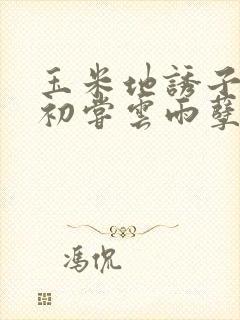 玉米地誘子
初嘗雲雨孽
馮侃